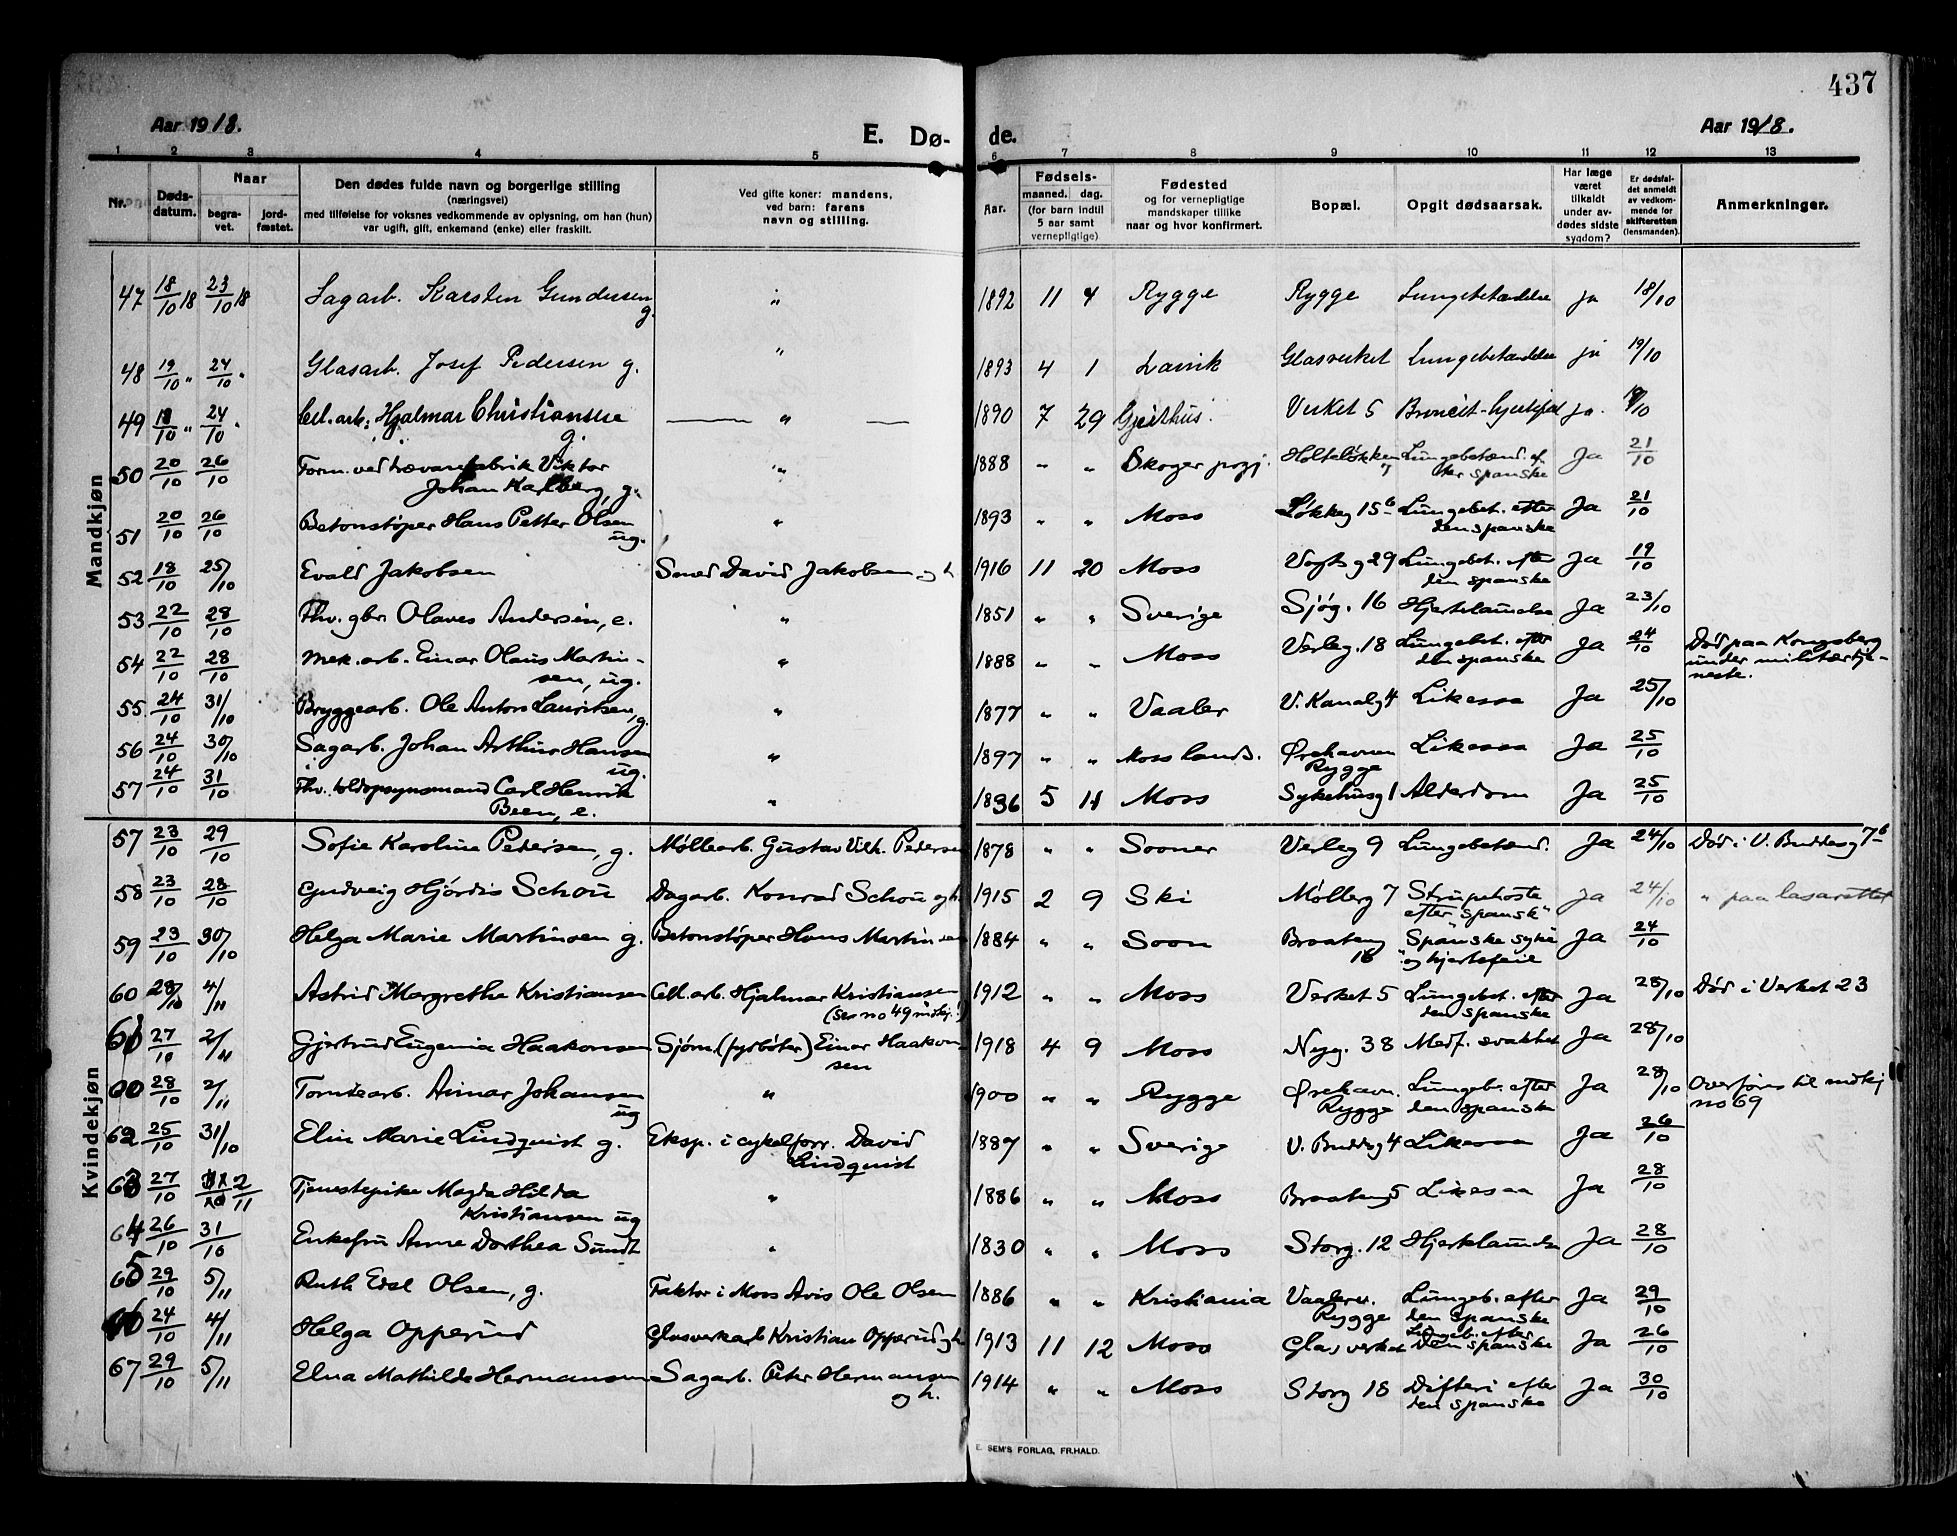 437
Aar 1918.
E. Dø- de.
Aar 1918.
1 2 3 4 5 6 7 8 9 10 11 12 13
Nr.
Døds-
datum.
Naar
begra-
vet.
jord-
fæstet.
Den dødes fulde navn og borgerlige stilling
(næringsvei)
med tilføielse for voksnes vedkommende av oplysning, om han (hun)
var ugift, gift, enkemand (enke) eller fraskilt.
Ved gifte koner: mandens,
ved barn: farens
navn og stilling.
Aar.
Fødsels-
maaned. dag.
(for barn indtil
5 aar samt
vernepligtige)
Fødested
og for vernepligtige
mandskaper tillike
naar og hvor konfirmert.
Bopæl.
Opgit dødsaarsak.
Har læge
været
tilkaldt
under av-
dødes sidste
sygdom?
Er dødsfal-
det anmeldt
av vedkom-
mende for
skifteretten
(lensmanden).
Anmerkninger.
Mandkjøn
47 18/10 18 23/10 18 Sagarb. Karsten Gundersen " 1892 11 4 Rygge Rygge Lungebetændelse ja 18/10
g.
48 19/10 " 24/10 " Glasarb. Josef Pedersen g. " 1893 4 1 Larvik Glasverket Lungebetændelse ja 19/10
49 " 24/10 " Cel. arb. Hjalmar Christiansen " 1890 7 29 Gjeithus. Verket 5 Broncit - hjertefeil ja.
g.
50 20/10 26/10 Form. ved trævarefabrik Viktor " 1888 " " Skoger prgj. Holteløkken Lungebetænd. ef- Ja 21/10
Johan Karlberg, g. ter spanske
51 20/10 26/10 Betonstøper Hans Petter Olsen " 1893 " " Moss Løkkeg 15 b Lungebet. efter Ja 21/10
ug. den spanske
52 18/10 25/10 Evald Jakobsen Smed David Jakobsen og h. 1916 11 20 Moss Vogts g 29 Lungebet. efter Ja 19/10
den spanske
53 22/10 28/10 Fhv. gbr. Olaves Andersen, e. " 1851 " " Sverige Sjøg. 16 Hjertelamelse Ja 23/10
54 22/10 28/10 Mek. arb. Einar Olaus Martin- " 1888 " " Moss Verleg. 18 Lungebet. efter Ja 24/10 Død paa Kongsberg
sen, ug. den spanske under militærtje-
neste.
55 24/10 31/10 Bryggearb. Ole Anton Lauritsen, g. " 1877 " " Vaaler V. Kanalg 4 Likessa Ja 25/10
56 24/10 30/10 Sagarb. Johan Arthur Hansen " 1897 " " Moss lands. Ørehavnen Likessa Ja 25/10
ug. Rygge
57 24/10 31/10 Fhv. toldopsynsmand Carl Henrik " 1836 5 11 Moss Sykehusg 1 Alderdom Ja 25/10
Been, e.
Kvindekjøn
57 23/10 29/10 Sofie Karoline Pedersen, g. Møllearb. Gustav Vilh. Pedersen 1878 " " Sooner Verleg 9 Lungebetænd. Ja 24/10 Død i V. Buddesg 7 b
58 23/10 28/10 Gudveig Hjördis Schou Dagarb. Konrad Schou og h. 1915 2 9 Ski Mølleg 7 Strupehoste Ja 24/10 " paa lasarettet
efter "spansk"
59 23/10 30/10 Helga Marie Martinsen g. Betonstøper Hans Martinsen 1884 " " Soon Braateng Spanske syke Ja 24/10
16 og hjertefeil
60 28/10 4/11 Astrid Margrethe Kristiansen Cell. arb. Hjalmar Kristiansen 1912 " " Moss Verket 5 Lungebet. efter Ja 28/10 Død i Verket 23
(se no 49 mdkj.!) den spanske
61 27/10 2/11 Gjertrud Eugenia Haakonsen Sjøm. (fyrbøter) Einar Haakon- 1918 4 9 Moss Nyg. 38 Medf. svakhet Ja 28/10
sen
28/10 2/11 Tomtearb. Arnar Johansen " 1900 " " Rygge Ørehavn. Lungeb. efter Ja 28/10 Overføres til mdkj
ug Rygge den spanske no 69
62 25/10 31/10 Elin Marie Lindquist g. Eksp. i cykelforr. David 1887 " " Sverige V. Buddeg 4 Likessa Ja 26/10
Lindquist
63 27/10 2/11 Tjenestepike Magda Hilda " 1886 " " Moss Braateng 5 Likessa Ja 28/10
Kristiansen ug
64 26/10 31/10 Enkefru Anne Dorthea Sundt " 1830 " " Moss Storg. 12 Hjertelamelse Ja 28/10
65 29/10 5/11 Ruth Edel Olsen, g. Faktor i Moss Avis Ole Olsen 1886 " " Kristiania Vaalerv. Lungeb. efter Ja 29/10
Rygge den spanske
66 24/10 4/11 Helga Opperud Glasverkarb Kristian Opperud og h. 1913 11 12 Moss Glasverket Lungeb. efter Ja 26/10
Den spanske
67 29/10 5/11 Elna Mathilde Hermansen Sagarb. Peter Hermansen 1914 " " Moss Storg 18 Difteri efter Ja 30/10
og h. den spanske
E. SEM'S FORLAG, FR.HALD.